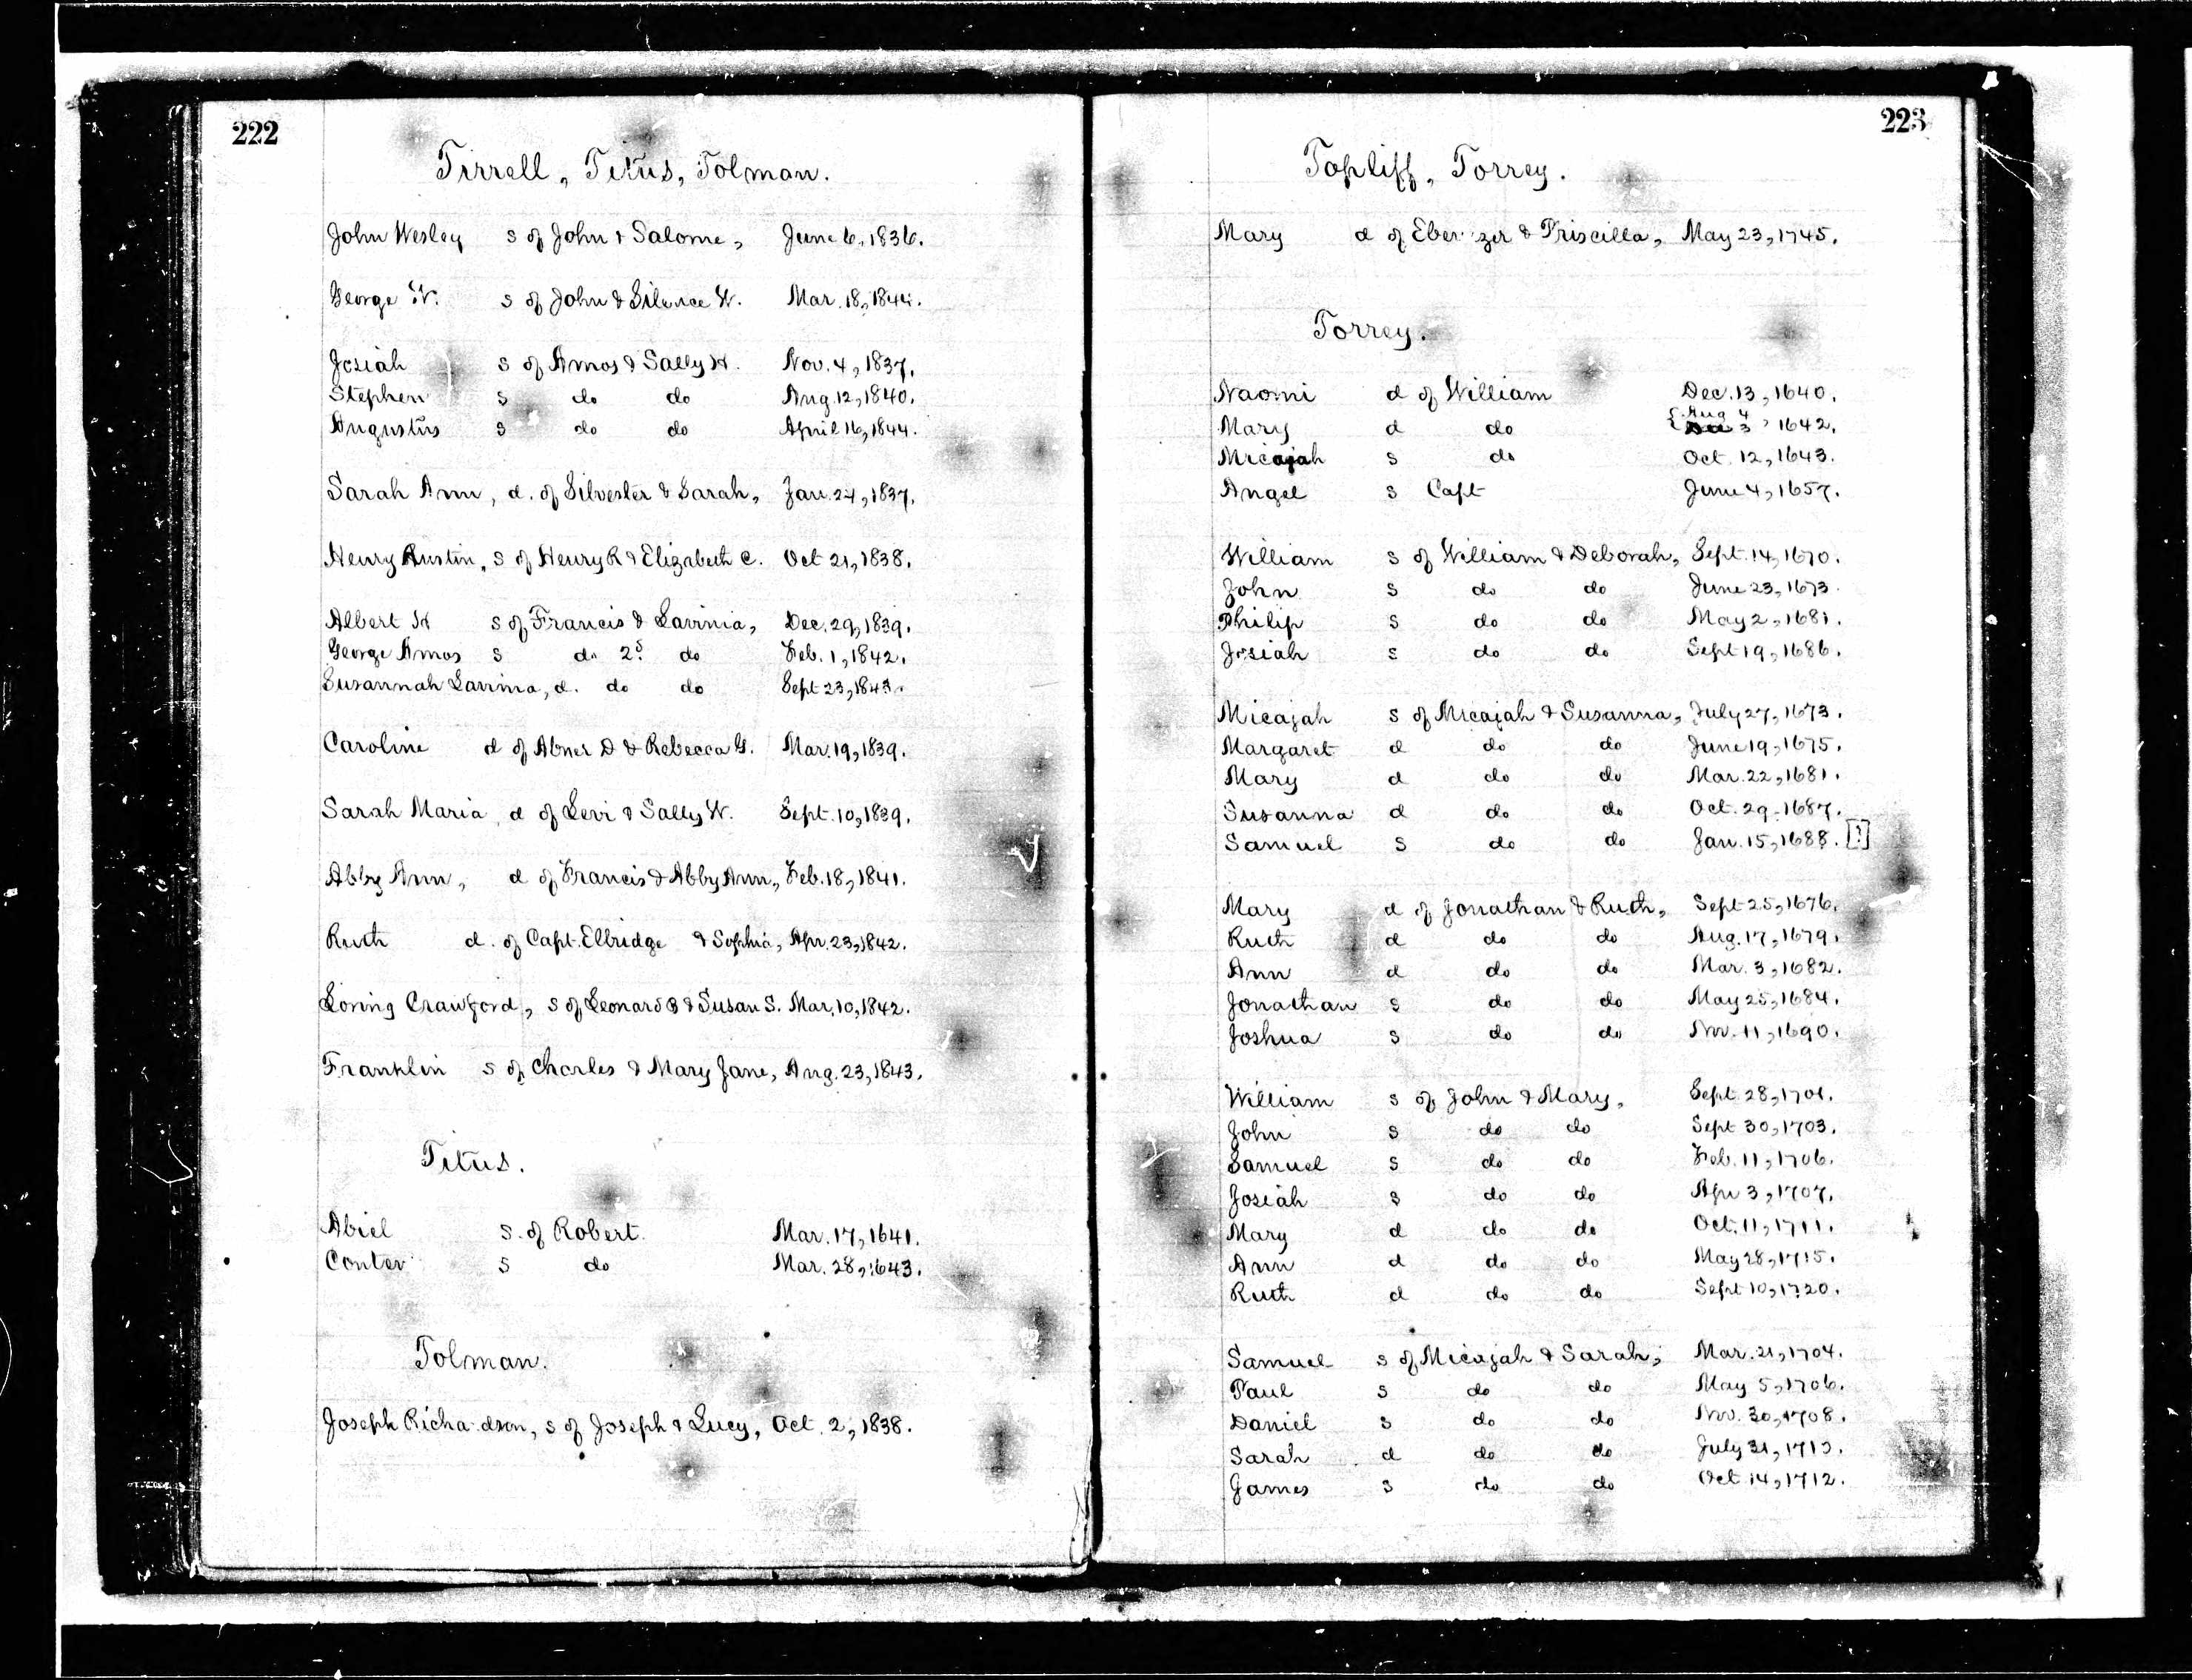 222
Tirrell, Titus, Tolman.
John Wesley s of John & Salome, June 6, 1836.
George W. s of John & Silence W. Mar. 18, 1844.
Josiah s of Amos & Sally H. Nov. 4, 1837.
Stephen s do do Aug. 12, 1840.
Augustus s do do April 16, 1844.
Sarah Ann, d. of Silvester & Sarah, Jan. 24, 1837.
Henry Austin, s of Henry R & Elizabeth C. Oct 21, 1838.
Albert H s of Francis & Lavinia, Dec. 29, 1839.
George Amos s do 2d. do Feb. 1, 1842.
Susannah Lavinia, d. do do Sept 23, 1843.
Caroline d of Abner D & Rebecca G. Mar. 19, 1839.
Sarah Maria, d of Levi & Sally W. Sept. 10, 1839.
Abby Ann, d of Francis & Abby Ann, Feb. 18, 1841.
Ruth d. of Capt. Elbridge & Sophia, Apr. 23, 1842.
Loring Crawford, s of Leonard B & Susan S. Mar, 10, 1842.
Franklin s of Charles & Mary Jane, Aug. 23, 1843.
Titus.
Abiel s. of Robert. Mar. 17, 1641.
Conter s do Mar. 28, 1643.
Tolman.
Joseph Richardson, s of Joseph & Lucy, Oct. 2, 1838.
223
Topliff, Torrey.
Mary d of Ebenezer & Priscilla, May 23, 1745.
Torrey.
Naomi d of William Dec. 13, 1640.
Aug 4
Mary d do { 3, 1642.
Micajah s do Oct. 12, 1643.
Angel s Capt June 4, 1657.
William s of William & Deborah, Sept. 14, 1670.
John s do do June 23, 1673.
Philip s do do May 2, 1681.
Josiah s do do Sept 19, 1686.
Micajah s of Micajah & Susanna, July 27, 1673.
Margaret d do do June 19, 1675.
Mary d do do Mar. 22, 1681.
Susanna d do do Oct. 29, 1687.
Samuel s do do Jan. 15, 1688. [?]
Mary d of Jonathan & Ruth, Sept 25, 1676.
Ruth d do do Aug. 17, 1679.
Ann d do do Mar. 3, 1682.
Jonathan s do do May 25, 1684.
Joshua s do do Nov. 11, 1690.
William s of John & Mary, Sept 28, 1701.
John s do do Sept 30, 1703.
Samuel s do do Feb. 11, 1706.
Josiah s do do Apr 3, 1707.
Mary d do do Oct. 11, 1711.
Ann d do do May 28, 1715.
Ruth d do do Sept 10, 1720.
Samuel s of Micajah & Sarah, Mar. 21, 1704.
Paul s do do May 5, 1706.
Daniel s do do Nov. 30, 1708.
Sarah d do do July 31,
James s do do Oct. 14, 1712.